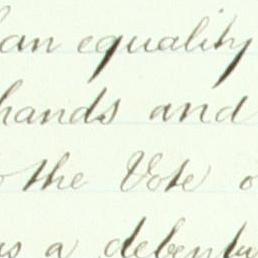 an equality
hands and
the Vote
as a debentu